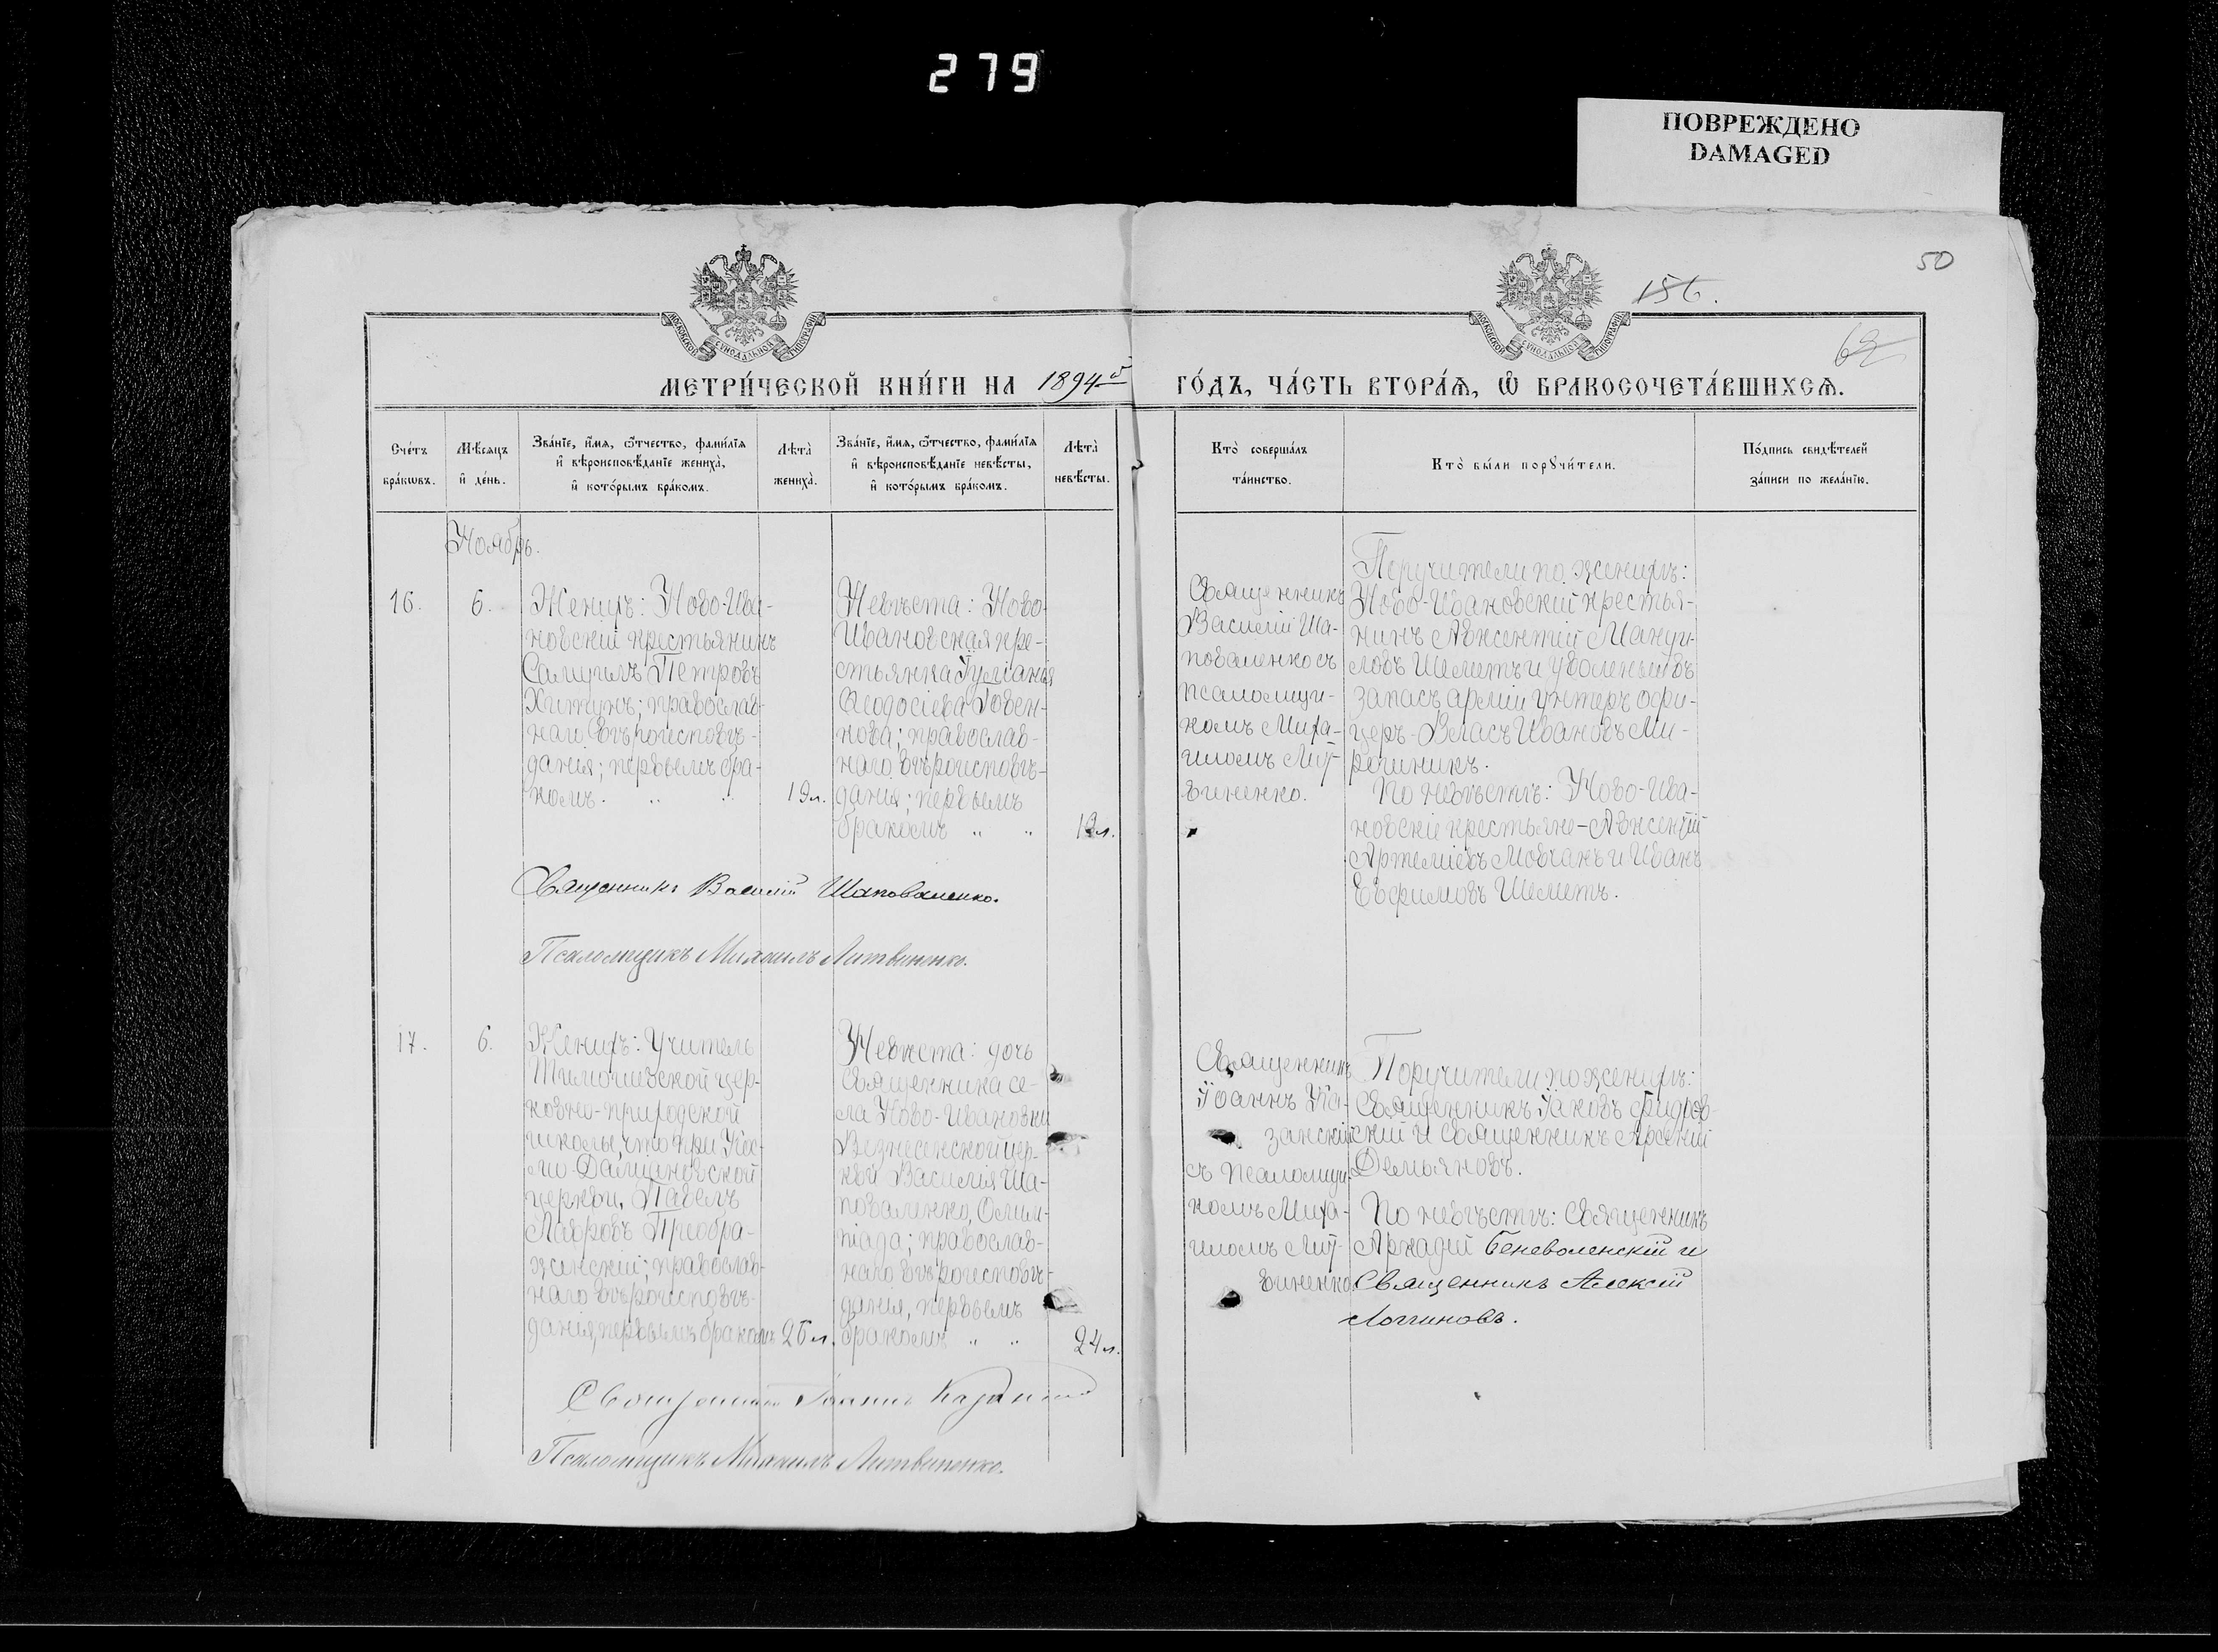 279
ПОВРЕЖДЕНО
DAMAGED
50
156.
62
МОСКОВСКОЙ СУНОДАЛЬНОЙ ТИПОГРАФІИ
МОСКОВСКОЙ СУНОДАЛЬНОЙ ТИПОГРАФІИ
МЕТРИ́ЧЕСКОЙ КНИ́ГИ НА 1894 й ГО́ДЪ, ЧА́СТЬ ВТОРА́Ѧ, Ѽ БРАКОСОЧЕТА́ВШИХСѦ.
Сче́тъ
бра́кωвъ.
Мѣ́сяцъ
и҆ де́нь.
Зва́нїе, и҆́мѧ, ѻ҆́тчество, фами́лїѧ
и҆ вѣроисповѣ́данїе жениха̀,
и҆ кото́рымъ бра́комъ.
Лѣта̀
жениха̀.
Зва́нїе, и҆́мѧ, ѻ҆́тчество, фами́лїѧ
и҆ вѣроисповѣ́данїе невѣ́сты,
и҆ кото́рымъ бра́комъ.
Лѣта̀
невѣ́сты.
Кто̀ соверша́лъ
та́инство.
Кто̀ бы́ли порꙋчи́тели.
По́дпись свидѣ́телей
за́писи по жела́нїю.
Ноябрь.
16.
6.
Женихъ: Ново-Ива-
новскій крестьянинъ
Самуилъ Петровъ
Хитунъ; православ-
наго вѣроисповѣ-
данія; первымъ бра-
комъ. „ „
19 л.
Невѣста: Ново-
Ивановская кре-
стьянка Іуліанія
Ѳеодосіева Говен-
кова; православ-
наго вѣроисповѣ-
данія; первымъ
бракомъ „ „
19 л.
Священникъ
Василій Ша-
поваленко съ
псаломщи-
комъ Миха-
иломъ Лит-
виненко.
Поручители по женихѣ:
Ново-Ивановскій крестья-
нинъ Авксентій Мануи-
ловъ Шеметъ и уволеный въ
запасъ арміи унтеръ офи-
церъ Власъ Ивановъ Ми-
рошникъ.
По невѣстѣ: Ново-Ива-
новскіе крестьяне - Авксентій
Артеміевъ Мовчанъ и Иванъ
Евфимовъ Шеметъ.
Священникъ Василій Шаповаленко.
Псаломщикъ Михаилъ Литвиненко.
17.
6.
Женихъ: Учитель
церковно-приходской
школы, что при
церкви, Павелъ
Лавровъ Преобра-
женскій; православ-
наго вѣроисповѣ-
данія, первымъ бракомъ
26 л.
Невѣста: дочь
священника се-
ла Ново-Ивановки
Вознесенской цер-
кви Василія Ша-
поваленко, Олим-
піада; православ-
наго вѣроисповѣ-
данія, первымъ
бракомъ „ „
24 л.
Священникъ
Іоаннъ Ка-
занскій
съ псаломщи-
комъ Миха-
иломъ Лит-
виненко.
Поручители по женихѣ:
Священникъ Іаковъ
и священникъ Арсеній
Демьяновъ.
По невѣстѣ: Священникъ
Аркадій Беневоленскій и
Священникъ Алексій
Логгиновъ.
Священникъ Іоаннъ Казанскій
Псаломщикъ Михаилъ Литвиненко.